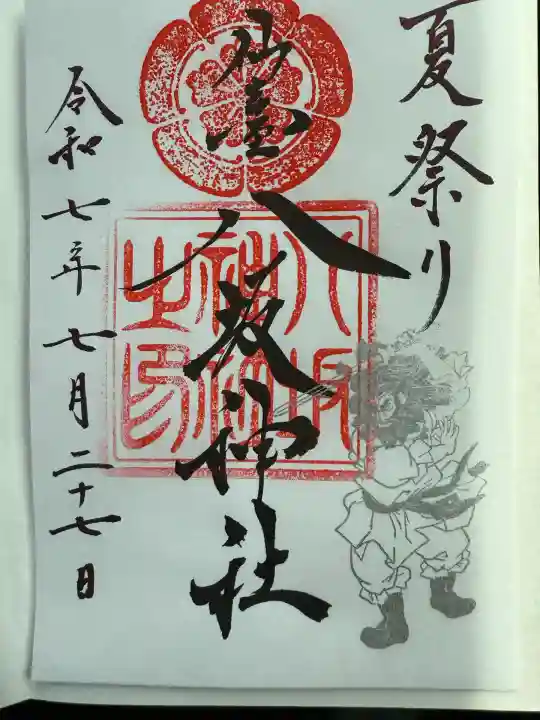 夏祭り
仙臺
八坂神社
八坂
神社
之印
令和七年七月二十七日